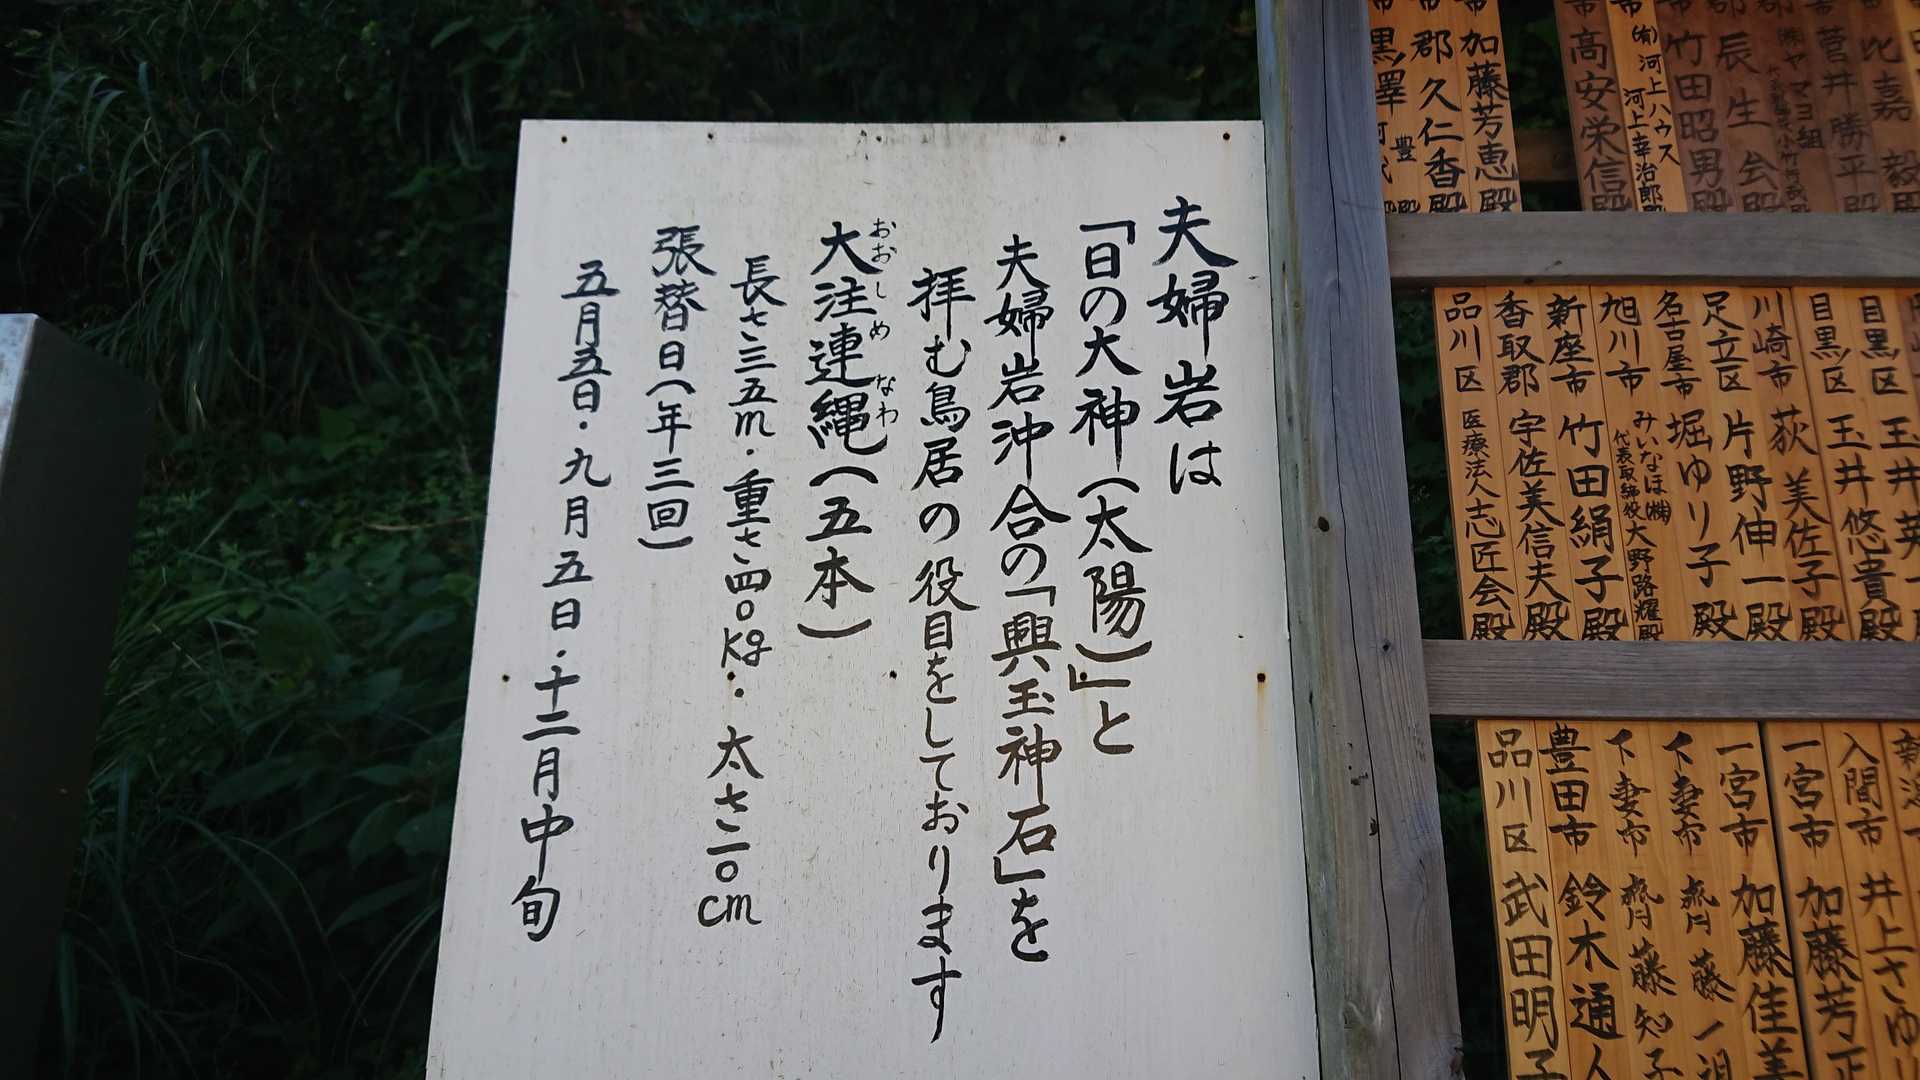 夫婦岩は
「日の大神(太陽)」と
夫婦岩沖合の「興玉神石」を
拝む鳥居の役目をしております
おおしめなわ
大注連縄(五本)
長さ三五m・重さ四〇kg・太さ一〇cm
張替日(年三回)
五月五日・九月五日・十二月中旬
比嘉 毅
菅井勝平殿
㈱ヤマヨ組
辰生会殿
竹田昭男殿
㈲河上ハウス
河上幸治郎殿
高安栄信殿
加藤芳恵殿
郡 久仁香殿
黒澤
豊
目黒区 玉井英一
目黒区 玉井悠貴殿
川崎市 荻美佐子殿
足立区 片野伸一殿
名古屋市 堀ゆり子殿
旭川市 みいなほ㈱
代表取締役 大野路耀殿
新座市 竹田絹子殿
香取郡 宇佐美信夫殿
品川区 医療法人志匠会殿
入間市 井上さゆり
一宮市 加藤芳正
一宮市 加藤佳美
下妻市 齊藤一
下妻市 齊藤知子
豊田市 鈴木通人
品川区 武田明子